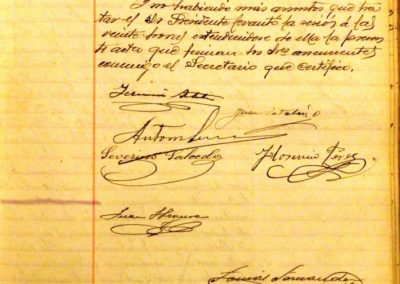 no habiendo más asuntos que tra
tar el Sr Presidente levantó la sesión á las
veinte horas extendiéndose de ella la presen
te acta que firman los Sres concurrentes
conmigo el Secretario que certifico.
Juan Catalá
Severino Salcedo Florencio Pérez
Juan Herrera